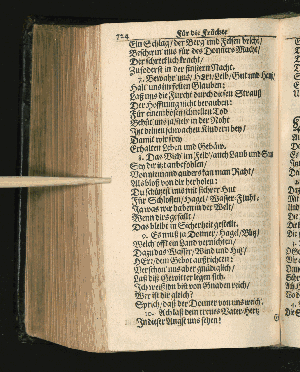 724 Für die Früchte
Ein Schlag / der Berg und Felsen bricht /
Beschirm uns für des Donners Macht /
Der schrecklich kracht /
Zuförderst in der finstern Nacht.
7. Bewahr uns / HErr / Leib / Gut und
Halt uns im festen Glauben;
Laß uns die Furcht durch diesen Strauß
Der Hoffnung nicht berauben:
Für einem bösen schnellen Tod
in der Noht
deinen schwachen Kindern bey /
Damit wir frey
Erhalten Leben und Gebäu.
8. Das Vieh im Feld / auch Laub und
Sey dir itzt anbefohlen /
Von niemand anders kan man Raht /
Als bloß von dir her holen:
Du schützest uns mit sichrer Hut
Für Schlossen / Hagel / Wasser-Fluht.
Na was wir haben in der Welt /
Wenn dirs gefällt /
Das bleibt in Sicherheit gestellt.
9. Es muß ja Donner / Hagel / Blitz /
Welch offt ein Land vernichten /
Dazu das Wasser / Wind und Hitz /
HErr / dein Gebot außrichten:
Verschon uns aber gnädiglich /
Laß diß Gewitter legen sich.
Ich weiß du bist von Gnaden reich /
Wer ist dir gleich?
Sprich / daß der Donner von uns weich.
10. Ach laß dein treues Vater-Hertz
In dieser Angst uns sehen!